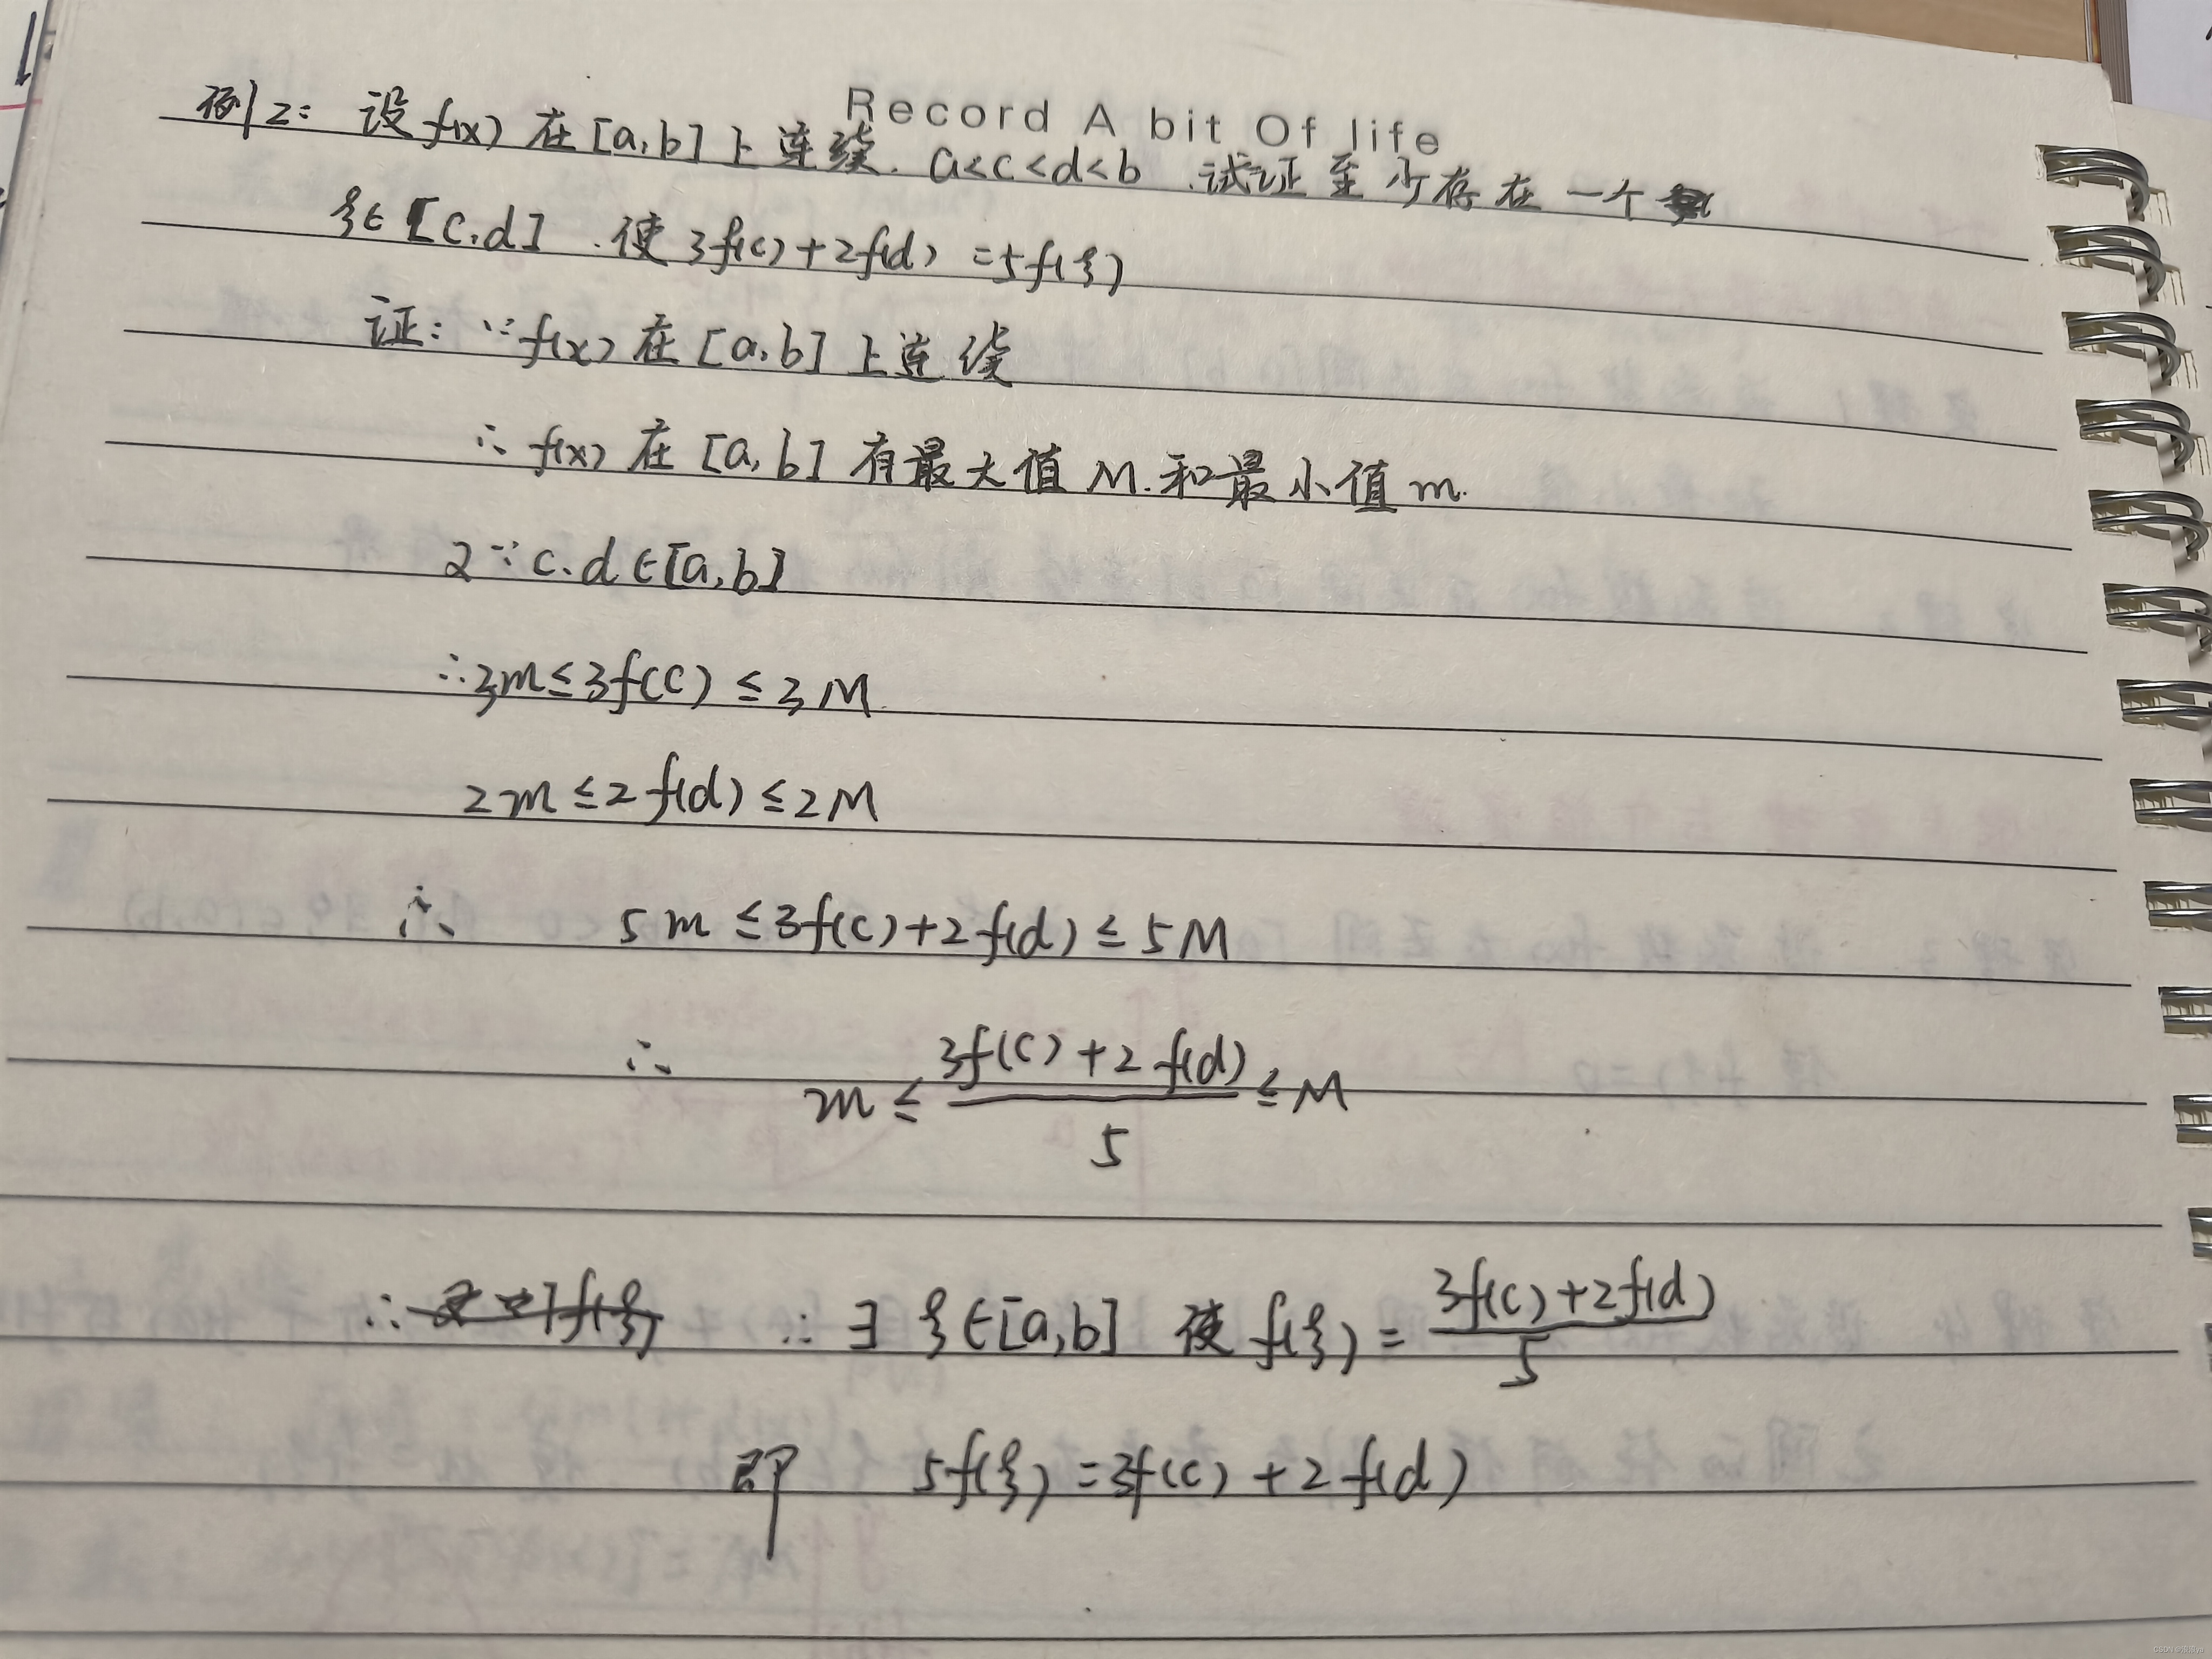 Record A bit Of life
例2: 设f(x)在[a,b]上连续. a<c<d<b .试证至少存在一个
ξ∈[c,d] .使3f(c)+2f(d)=5f(ξ)
证: ∵f(x)在[a,b]上连续
∴f(x)在[a,b]有最大值M.和最小值m.
2∵c.d∈[a,b]
∴3m≤3f(c)≤3M.
2m≤2f(d)≤2M
∴ 5m≤3f(c)+2f(d)≤5M
∴ m≤(3f(c)+2f(d))/5≤M
∴ ∴∃ξ∈[a,b] 使f(ξ)=(3f(c)+2f(d))/5
即 5f(ξ)=3f(c)+2f(d)